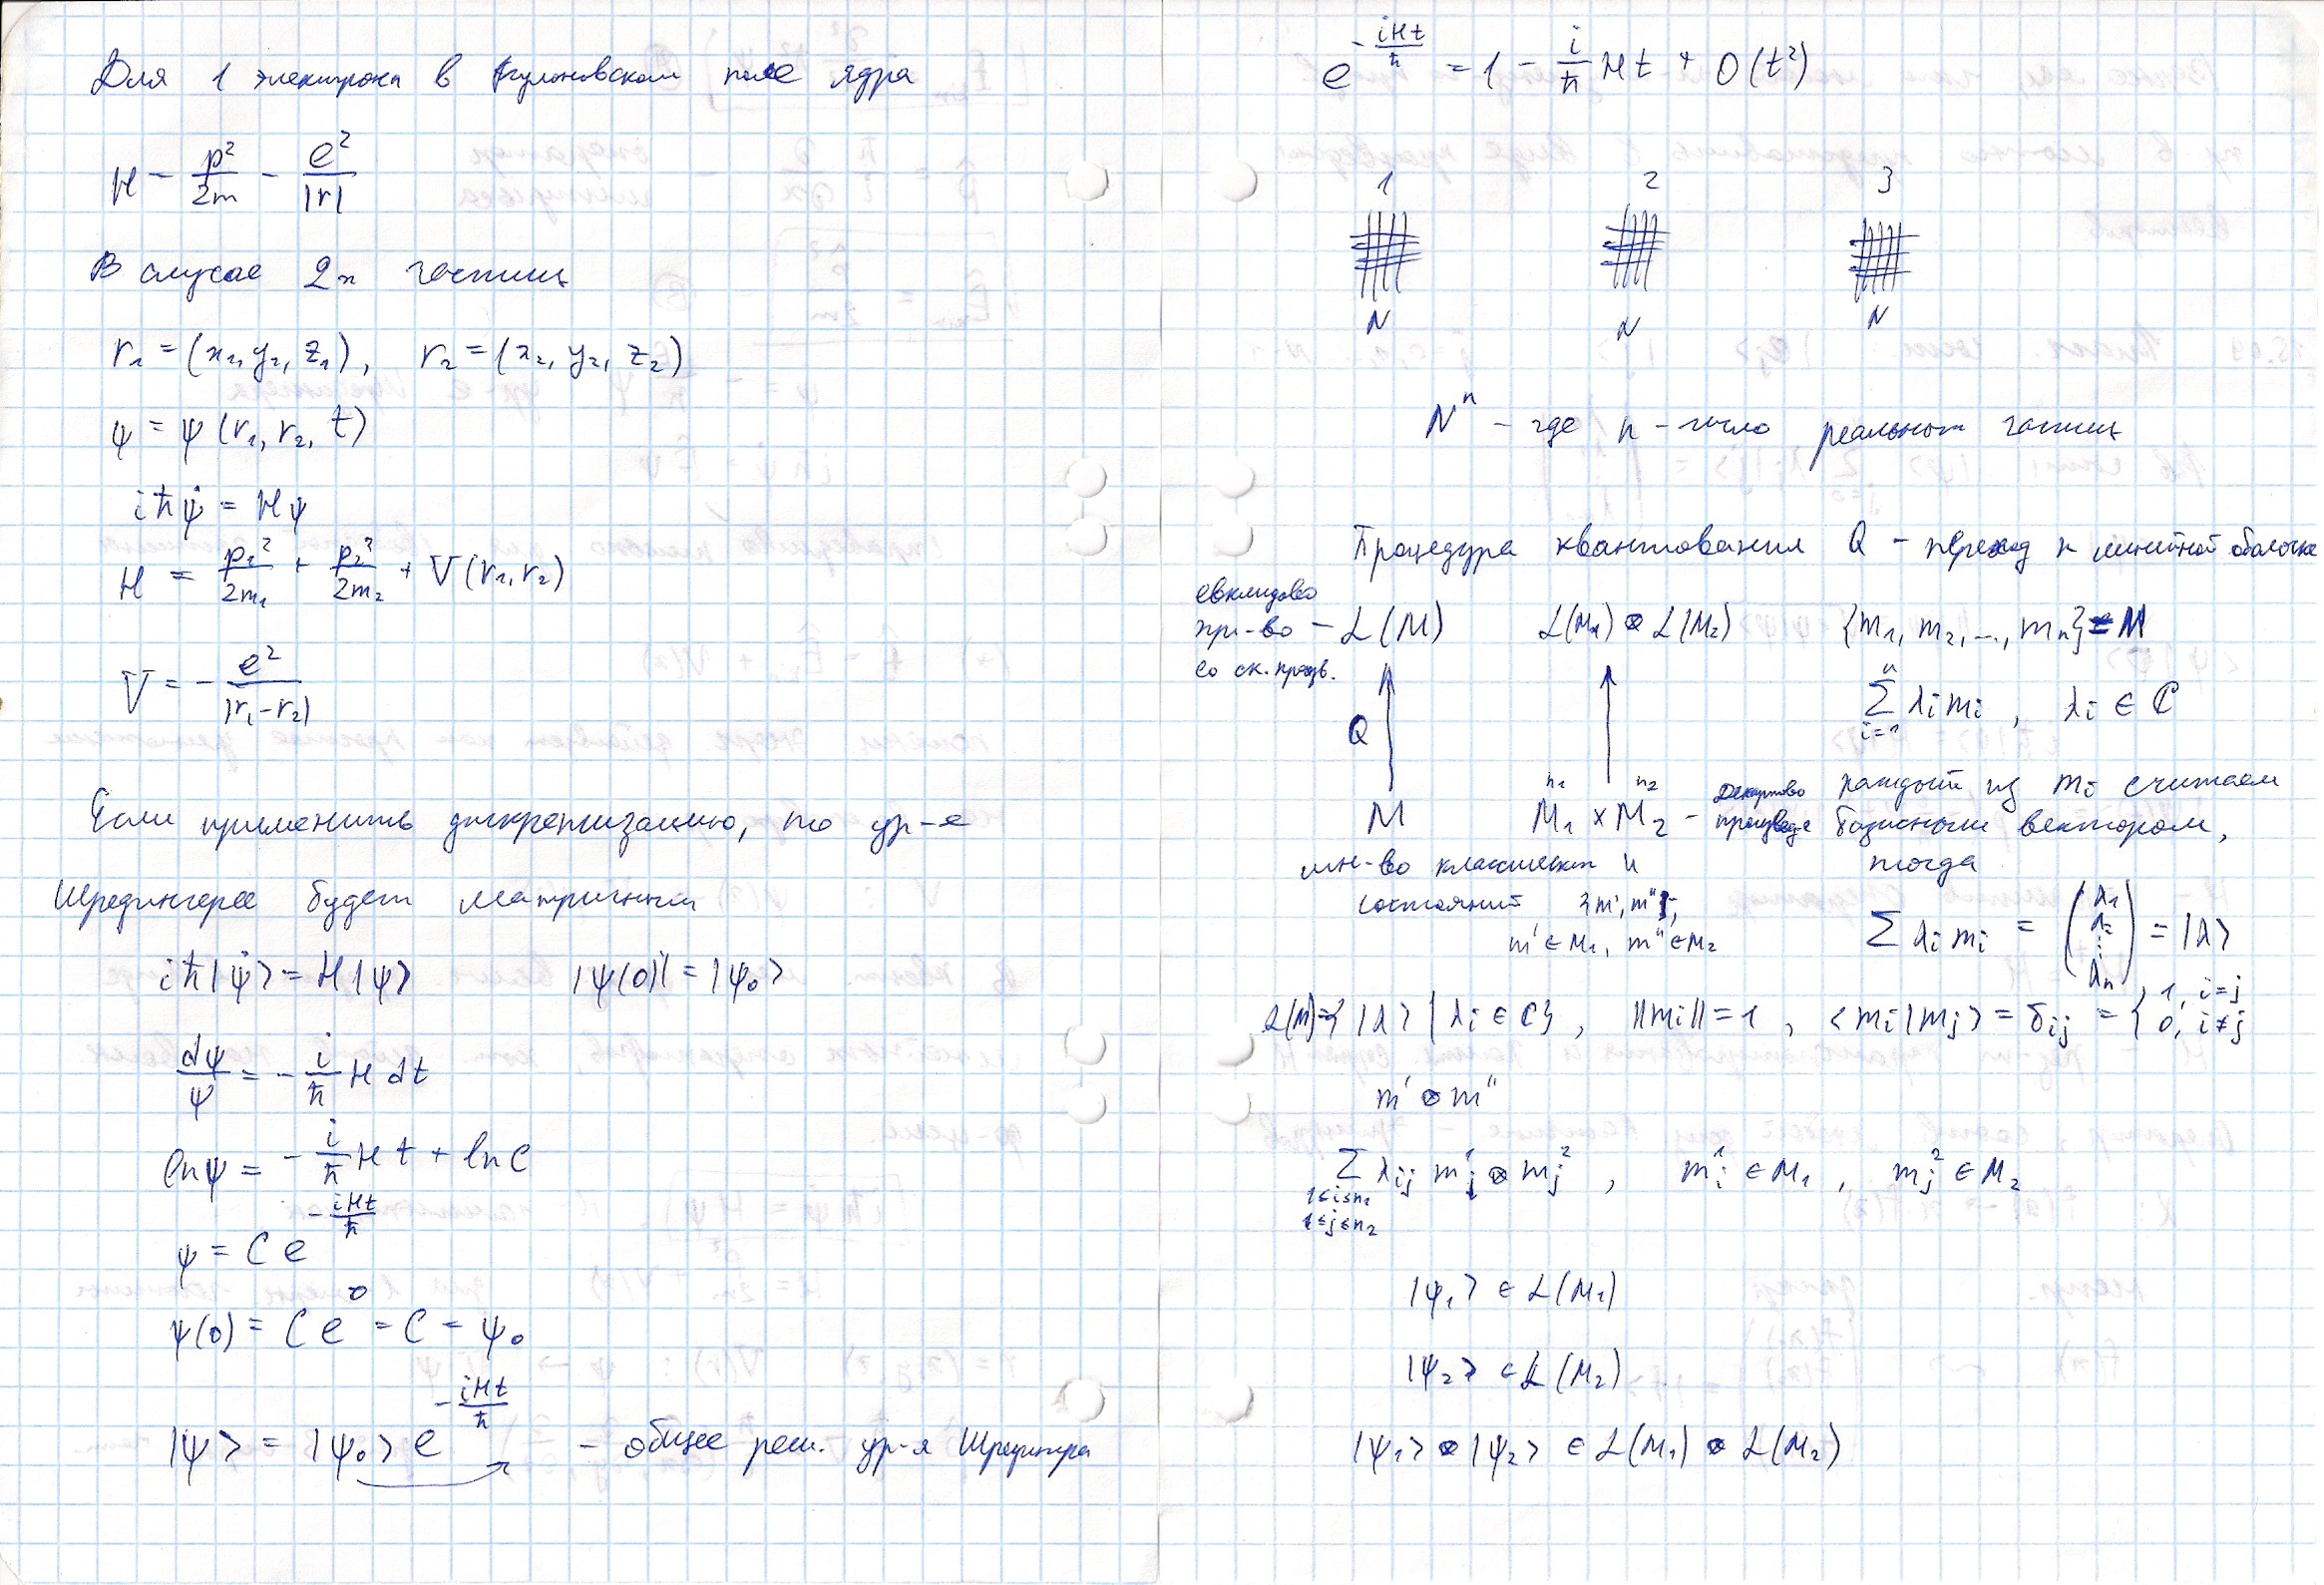 Для 1 электрона в кулоновском поле ядра
H - p²/2m - e²/|r|
В случае 2х частиц
r₁ = (x₁, y₂, z₁), r₂ = (x₂, y₂, z₂)
ψ = ψ (r₁, r₂, t)
iħψ̇ = Hψ
H = p₁²/2m₁ + p₂²/2m₂ + V(r₁, r₂)
V = - e²/|r₁-r₂|
Если применить дискретизацию, то ур-е
Шредингера будет матричным
iħ|ψ̇> = H|ψ> |ψ(0)| = |ψ₀>
dψ/ψ = - i/ħ H dt
lnψ = - i/ħ H t + ln C
ψ = C e^(-iHt/ħ)
ψ(0) = C e⁰ = C = ψ₀
|ψ> = |ψ₀> e^(-iHt/ħ) - общее реш. ур-я Шредингера
e^(-iHt/ħ) = 1 - i/ħ H t + O(t²)
1 2 3
N N N
Nⁿ - где n - число реальных частиц
Процедура квантования Q - переход к линейной оболочке
евклидово
пр-во - L(M) L(M₁) ⊗ L(M₂) {m₁, m₂, ..., mₙ} = M
со ск. произв.
n
Σ λᵢmᵢ, λᵢ ∈ ℂ
i=1
Q
n₁ n₂
M M₁ × M₂ - Декартово произведе
мн-во классическ и
состояний {m', m''},
m' ∈ M₁, m'' ∈ M₂
каждый из mᵢ считаем
базисным вектором,
тогда
Σ λᵢmᵢ = (λ₁ λ₂ ⋮ λₙ) = |λ>
L(M)={ |λ> | λᵢ ∈ ℂ}, ||mᵢ|| = 1, <mᵢ|mⱼ> = δᵢⱼ = { 1, i=j 0, i≠j
m' ⊗ m''
Σ λᵢⱼ m¹ⱼ ⊗ mⱼ², m¹ᵢ ∈ M₁, m²ⱼ ∈ M₂
1≤i≤n₁
1≤j≤n₂
|ψ₁> ∈ L(M₁)
|ψ₂> ∈ L(M₂)
|ψ₁> ⊗ |ψ₂> ∈ L(M₁) ⊗ L(M₂)